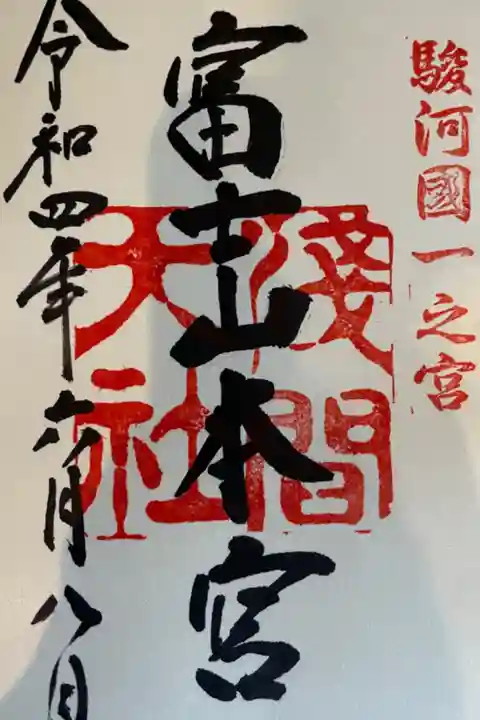 駿河國一之宮
富士山本宮
淺間
大社
令和四年六月八日